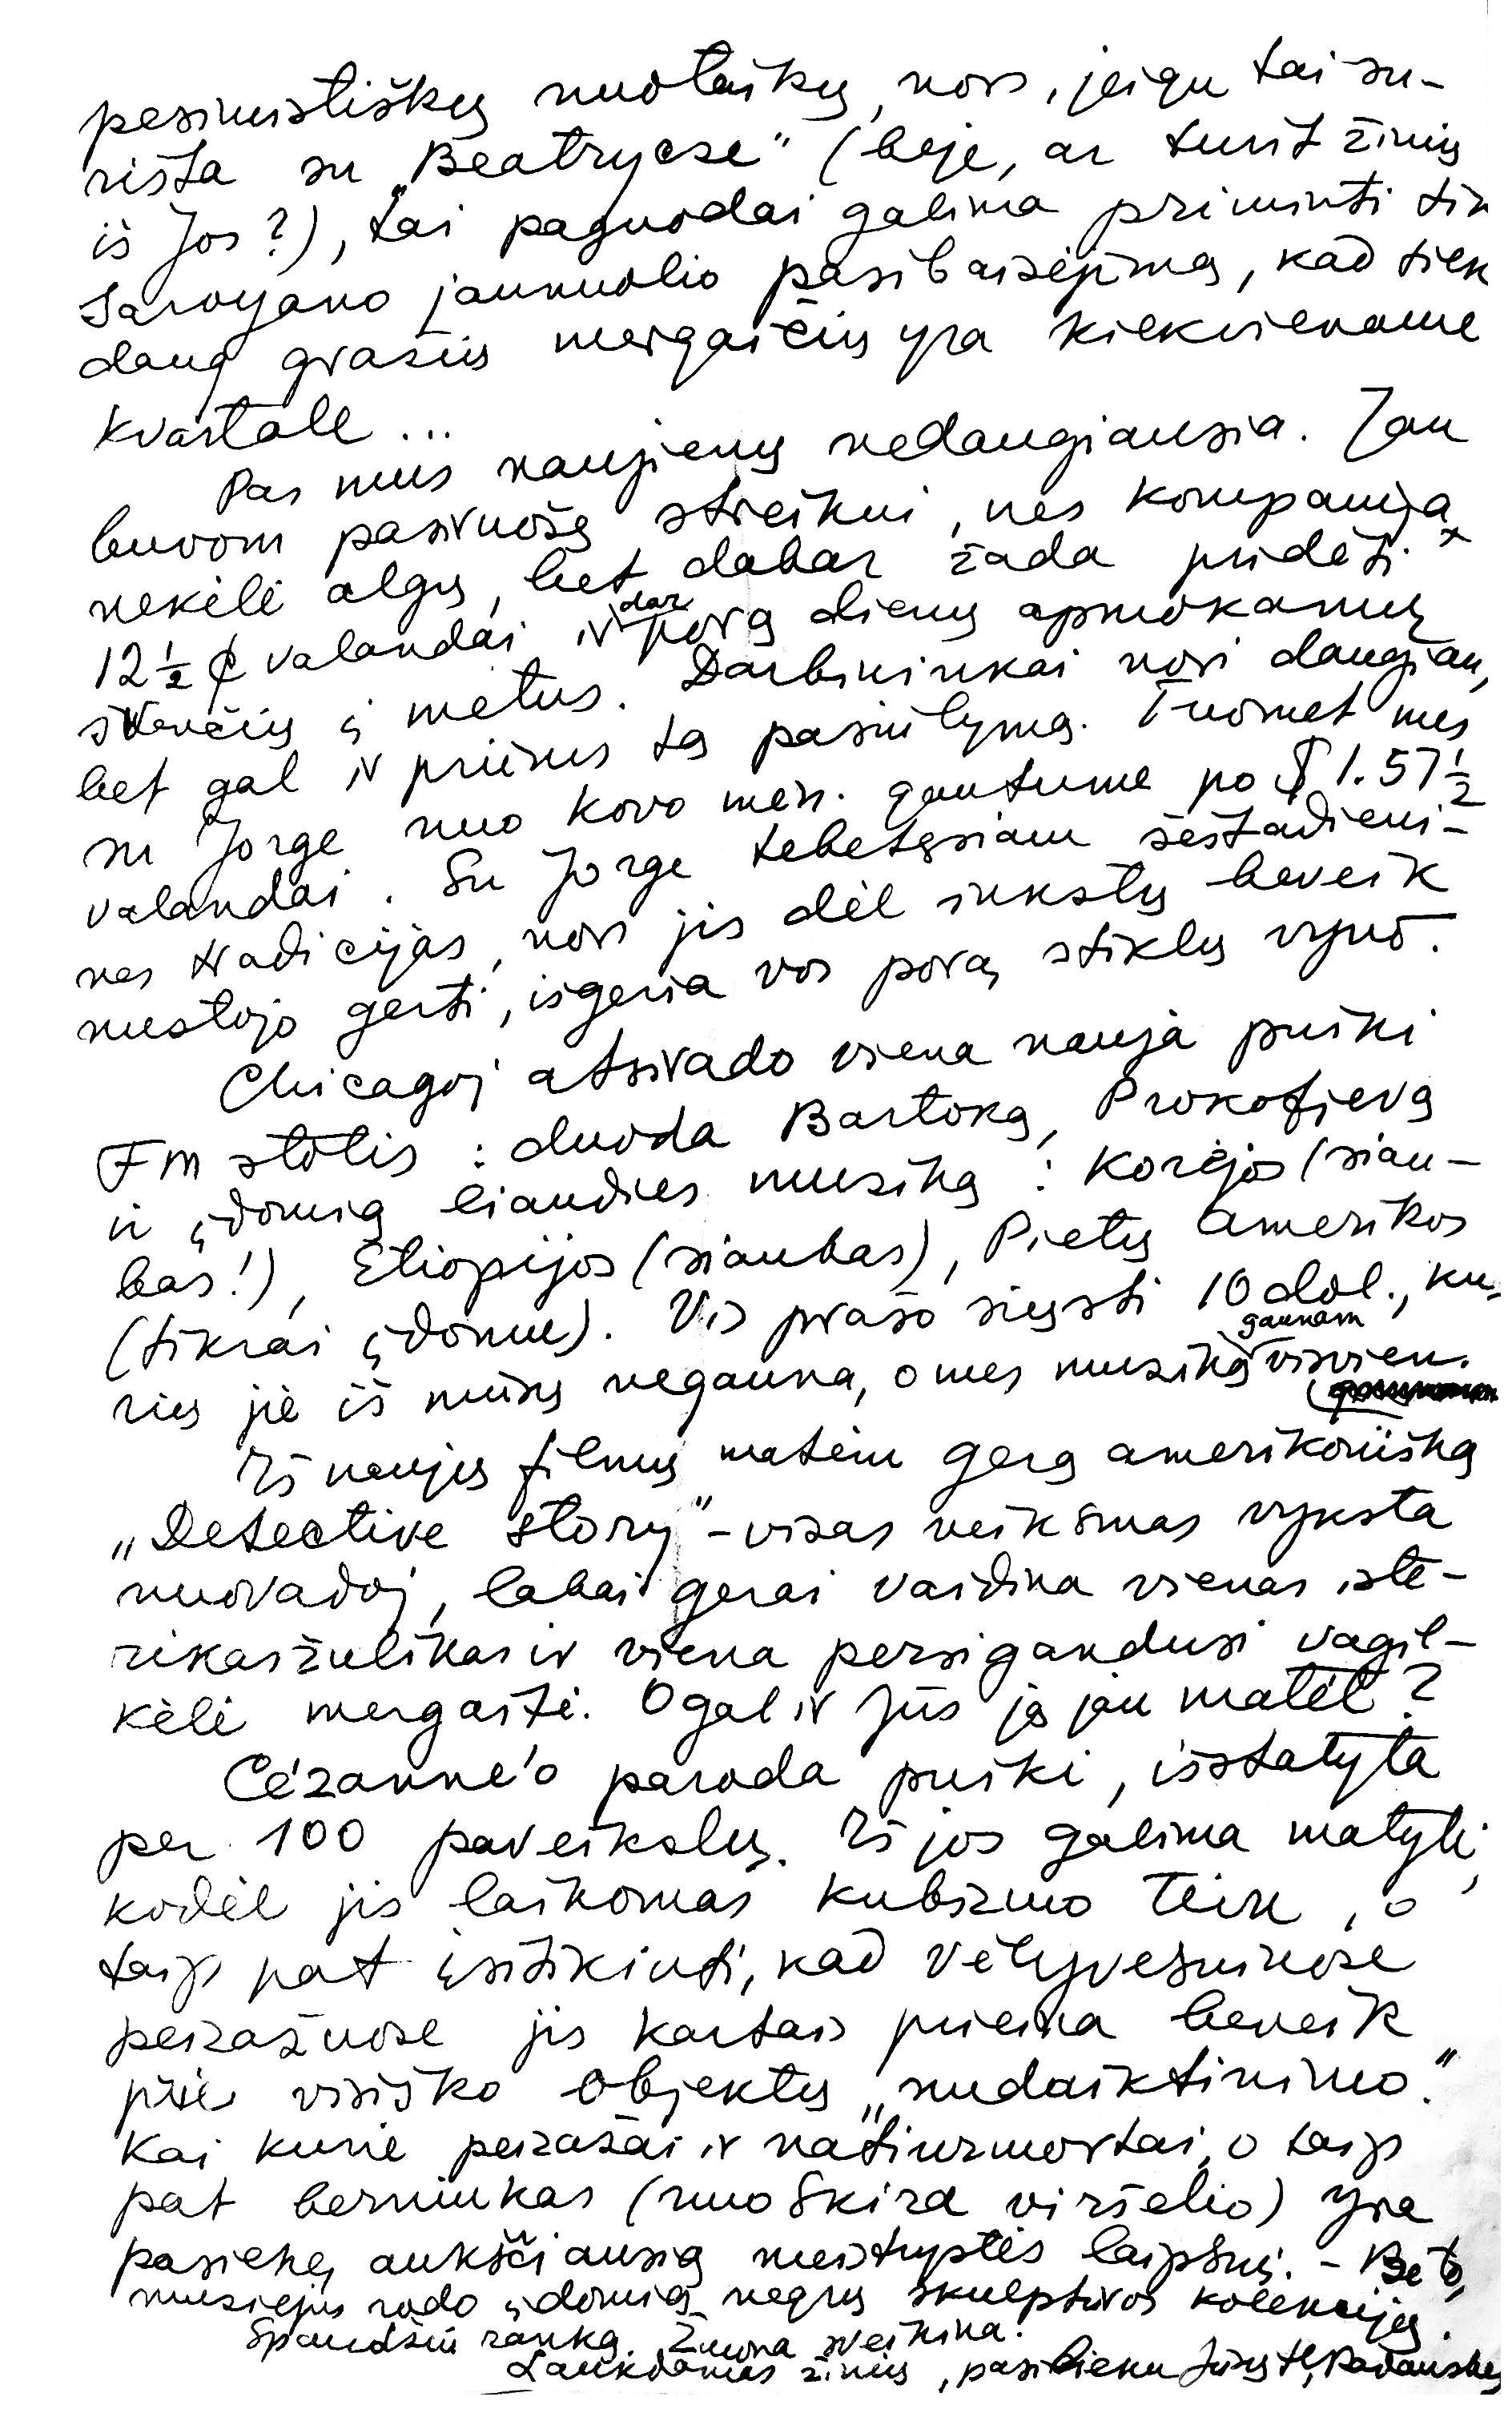 pesimistiškų nuotaikų, nors, jeigu tai su-
rišta su „Beatrycze" (beje, ar turit žinių
iš Jos?), tai paguodai galima priminti tik
Saroyano jaunuolio pasibaisėjimą, kad tiek
daug gražių mergaičių yra kiekviename
kvartale...
Pas mus naujienų nedaugiausia. Jau
buvom pasiruošę streikui, nes kompanija
nekėlė algų, bet dabar žada pridėti
12 ½ ¢ valandai ir dar porą dienų apmokamų
švenčių į metus. Darbininkai nori daugiau,
bet gal ir priims tą pasiūlymą. Tuomet mes
su Jorge nuo kovo mėn. gautume po $ 1.57 ½
valandai. Su Jorge tebetęsiam šeštadieni-
nes tradicijas, nors jis dėl inkstų beveik
nustojo gerti, išgeria vos porą stiklų vyno.
Chicagoj atsirado viena nauja puiki
FM stotis: duoda Bartoką, Prokofjevą
ir įdomią liaudies muziką: Korėjos (siau-
bas!), Etiopijos (siaubas), Pietų Amerikos
(tikrai įdomu). Vis prašo siųsti 10 dol., ku-
rių jie iš mūsų negauna, o mes muziką gaunam visvien.
Iš naujų filmų matėm gerą amerikonišką
„Detective story" - visas veiksmas vyksta
nuovadoj, labai gerai vaidina vienas iste-
rikas žulikas ir viena persigandusi vagil-
kėlė mergaitė. O gal ir Jūs ją jau matėt?
Cézanne'o paroda puiki, išstatyta
per 100 paveikslų. Iš jos galima matyti,
kodėl jis laikomas kubizmo tėvu, o
taip pat įsitikinti, kad vėlyvesniuose
peizažuose jis kartais prieina beveik
prie visiško objektų „nudaiktinimo."
Kai kurie peizažai ir natiurmortai, o taip
pat berniukas (nuo Skira viršelio) yra
pasiekę aukščiausią meistrystės laipsnį. - Be to,
muziejus rodo įdomią negrų skulptūros kolekciją.
Spaudžiu ranką. Žmona sveikina.
Laukdamas žinių, pasilieku Jūsų